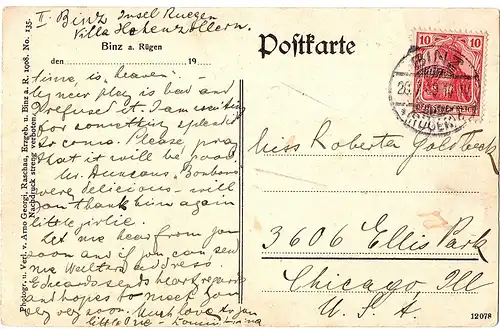 II Binz Insel Ruegen
Villa Hohenzollern.
Binz a. Rügen
den 19
Postkarte
time is "heaven" -
by near play is bad and
I refused it. I am waiting
for something splendid
to come. Please, pray
that it will be good
Mr. Duncans Bonbons
were delicious - will
you thank him again
little girlie.
Let me hear from you
soon and if you can, send
me Walters address
Edward sends heart, regards
and hopes to meet you
very very soon. Much love to you
little One -
Miss Roberta Goldbeck
3606 Ellis Park
Chicago Ill
U. S. A.
10
10
BINZ
DEUTSCHES REICH
(RÜGEN)
Photogr. u. Verl. v. Arno Georgi, Raschau, Erzgeb. u. Binz a. R. 1908. No. 135.
Nachdruck streng verboten.
12078